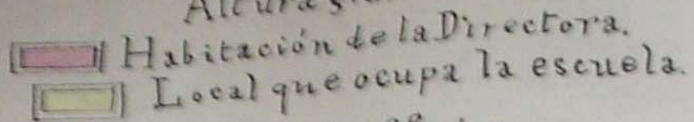 Alturas
Habitación de la Directora.
Local que ocupa la escuela.